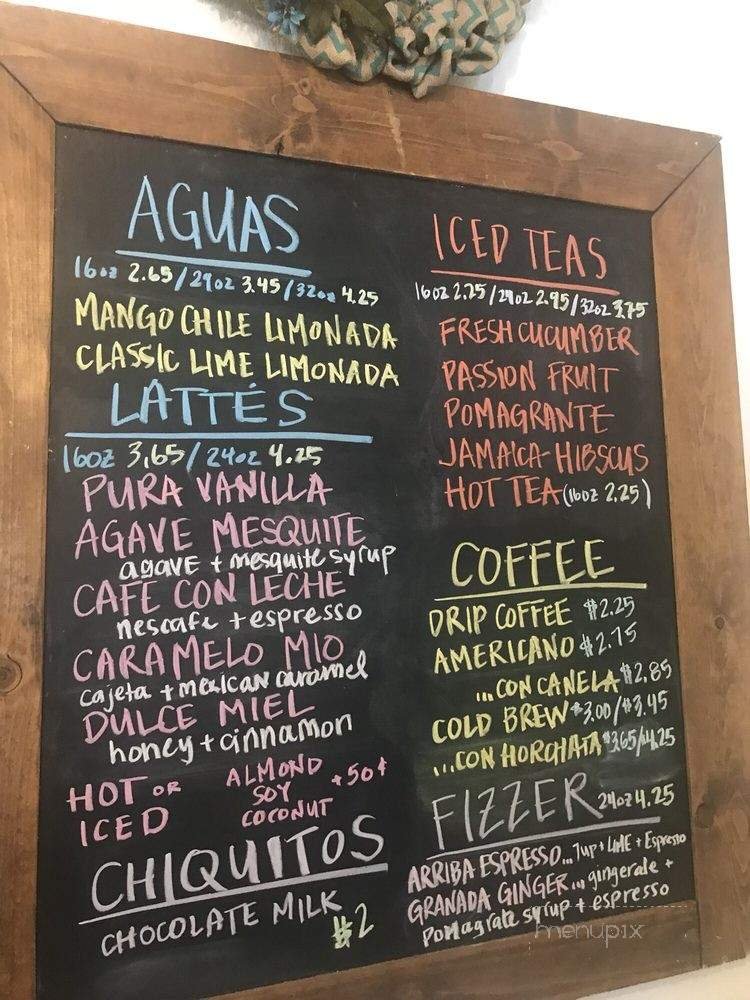 AGUAS
16oz 2.65/24oz 3.45/32oz 4.25
MANGO CHILE LIMONADA
CLASSIC LIME LIMONADA
LATTÉS
16oz 3.65/24oz 4.25
PURA VANILLA
AGAVE MESQUITE
agave + mesquite syrup
CAFE CON LECHE
nescafe + espresso
CARAMELO MIO
cajeta + mexican caramel
DULCE MIEL
honey + cinnamon
HOT OR
ICED
ALMOND
SOY
COCONUT
+50¢
CHIQUITOS
CHOCOLATE MILK
$2
ICED TEAS
16oz 2.25/24oz 2.95/32oz 3.75
FRESH CUCUMBER
PASSION FRUIT
POMAGRANTE
JAMAICA-HIBSCUS
HOT TEA (16oz 2.25)
COFFEE
DRIP COFFEE $2.25
AMERICANO $2.75
...CON CANELA $2.85
COLD BREW $3.00/$3.45
...CON HORCHATA $3.65/$4.25
FIZZER 24oz 4.25
ARRIBA ESPRESSO... 7up + LIME + Espresso
GRANADA GINGER... gingerale +
pomagrate syrup + espresso
menupix